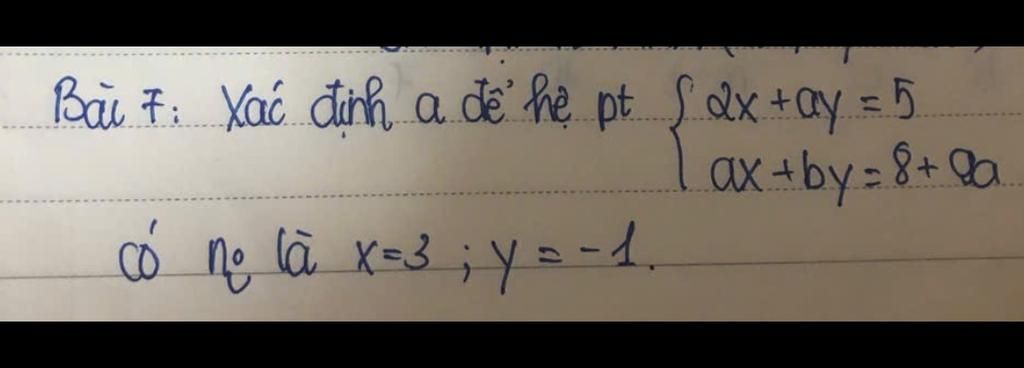 Bài 7: Xác định a để hệ pt { 2x + ay = 5
ax + by = 8 + 9a
có no là x = 3 ; y = -1.